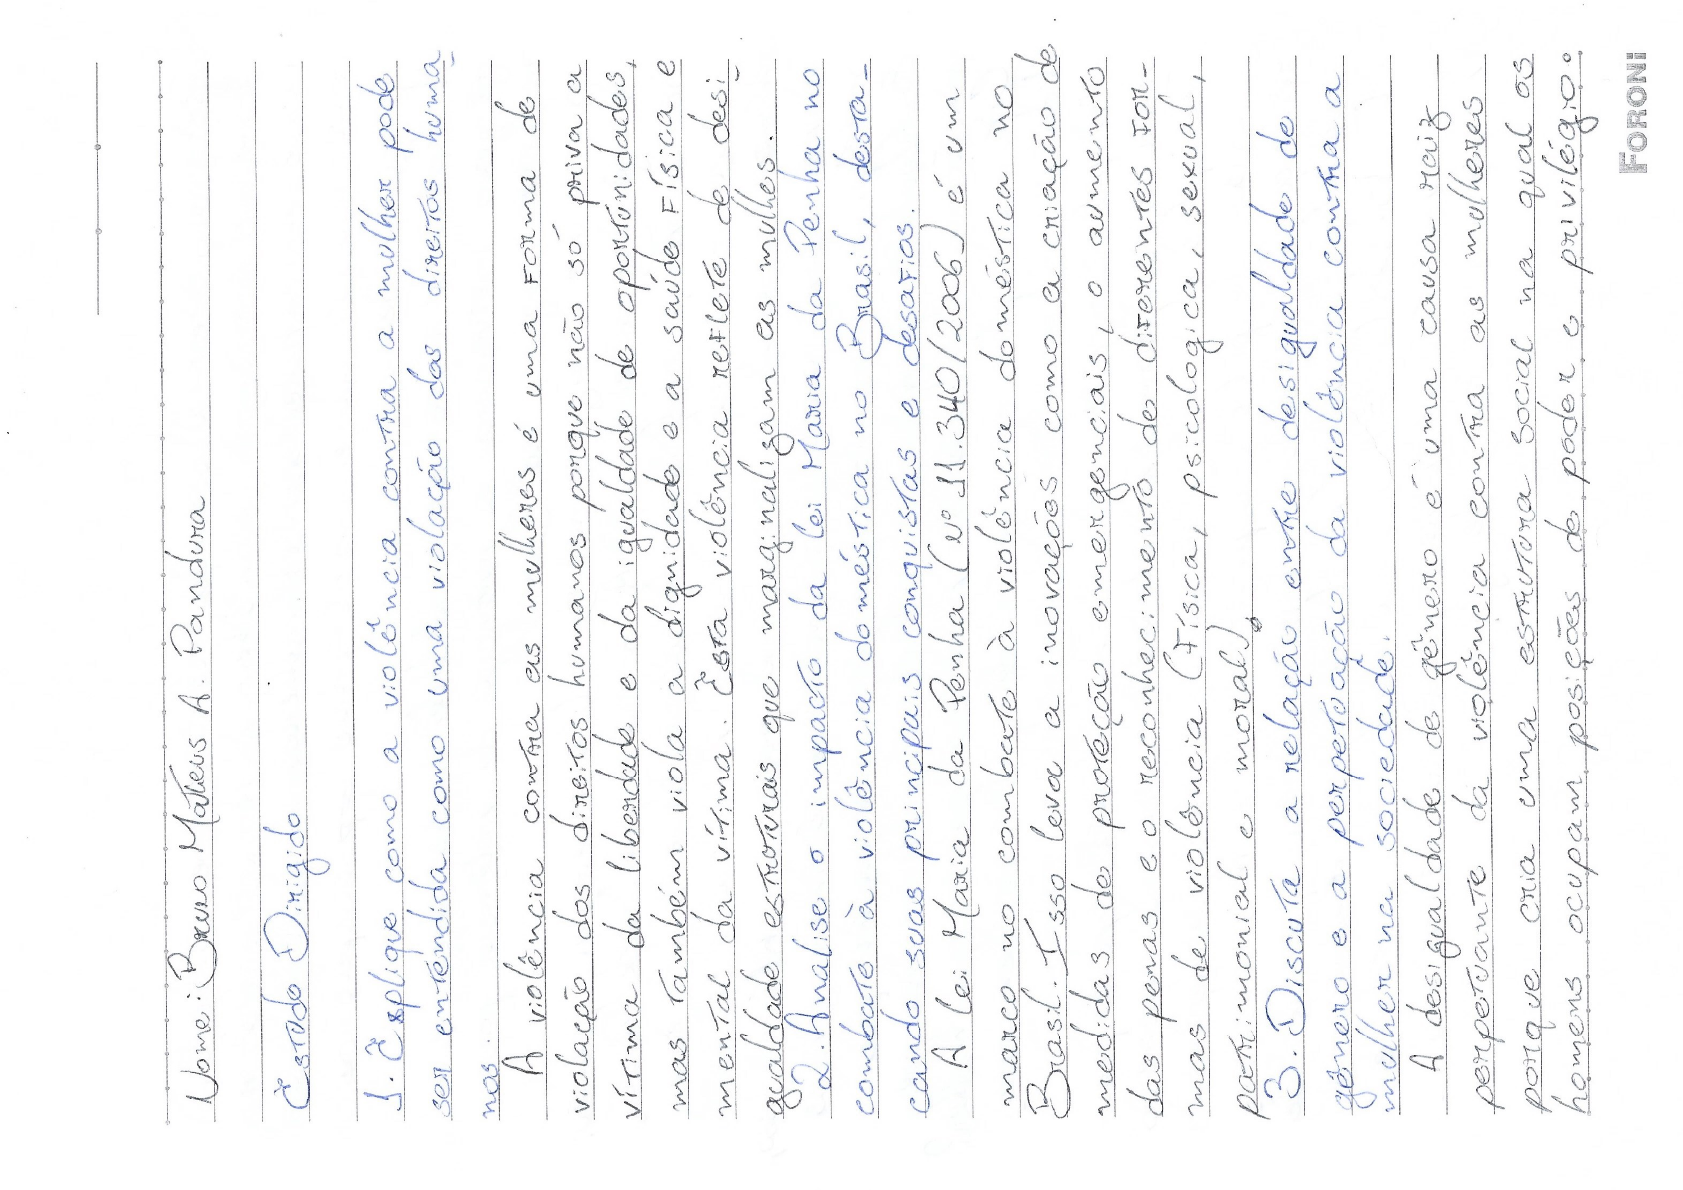 Nome: Bruno Mateus A. Pandura
Estudo Dirigido
1. Explique como a violência contra a mulher pode
ser entendida como uma violação dos direitos huma-
nos.
A violência contra as mulheres é uma forma de
violação dos direitos humanos porque não só priva a
vítima da liberdade e da igualdade de oportunidades,
mas também viola a dignidade e a saúde física e
mental da vítima. Esta violência reflete de desi-
gualdade estruturais que marginalizam as mulhes.
2. Analise o impacto da lei Maria da Penha no
combate à violência doméstica no Brasil, desta-
cando suas principais conquistas e desafios.
A lei Maria da Penha (nº 11.340/2006) é um
marco no combate à violência doméstica no
Brasil. Isso leva a inovações como a criação de
medidas de proteção emergenciais, o aumento
das penas e o reconhecimento de diferentes for-
mas de violência (física, psicologica, sexual,
patrimonial e moral).
3. Discuta a relação entre desigualdade de
gênero e a perpetoação da violência contra a
mulher na sociedade.
A desigualdade de gênero é uma causa raiz
perpetuante da violência contra as mulheres
porque cria uma estrutura social na qual os
homens ocupam posições de poder e privilégio.
FORONI